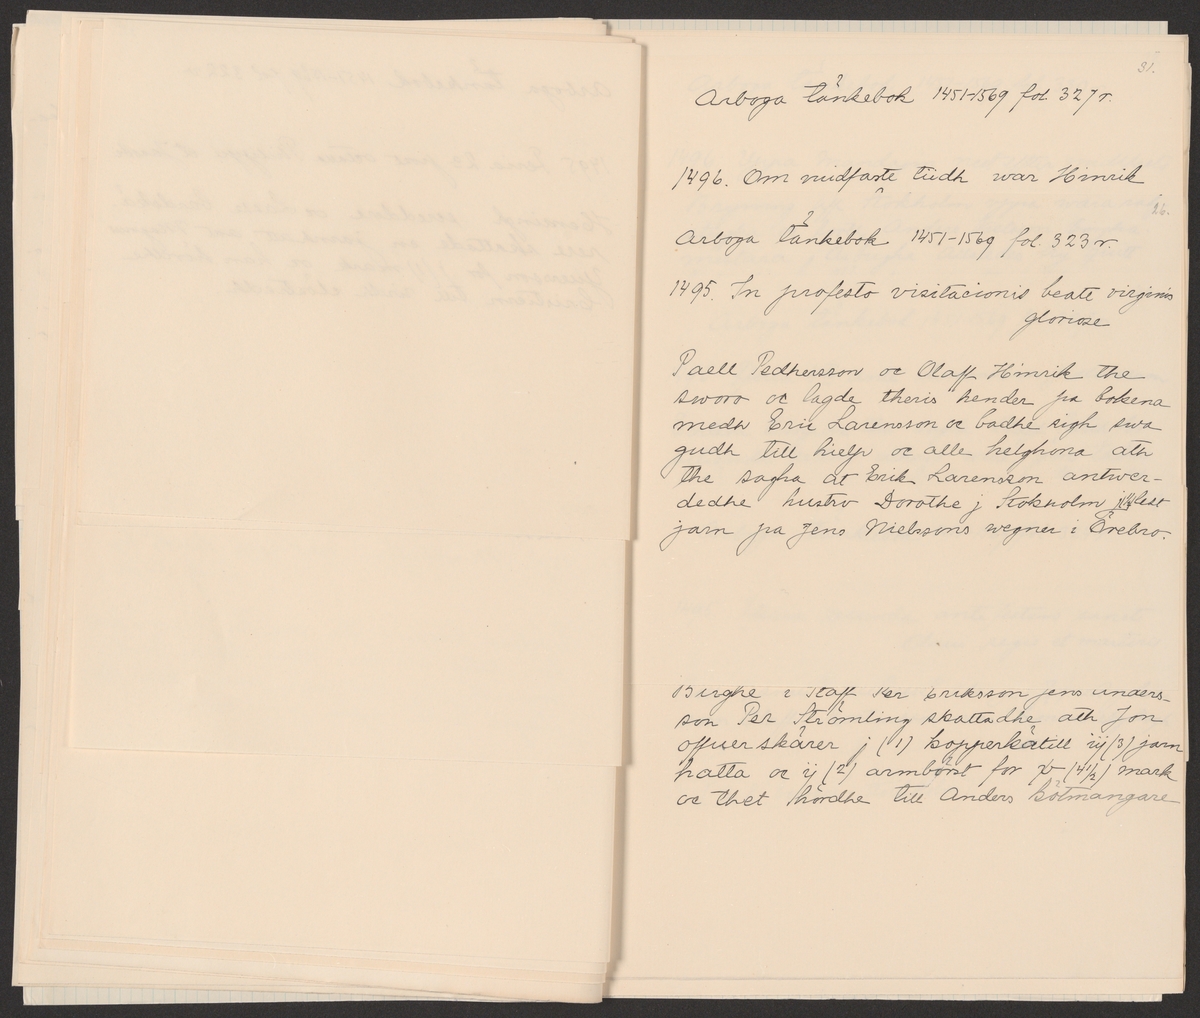 31.
Arboga tänkebok 1451-1569 fol. 327 r.
1496. Om midfasto tiidh war Hinrik
26.
Arboga tänkebok 1451-1569 fol. 323 r.
1495. In profesto visitacionis beate virginis
gloriose
Paell Pedhersson oc Olaff Hinrik the
sworo oc lagde theris hender pa bokena
medh Eric Larensson oc badhe sigh swa
gudh till hielp oc alle helghona ath
the sagha at Erik Larensson antwer-
dedhe hustro Dorothe j Stokholm lest
jarn pa Jens Nielssons wegner i Örebro.
Birghe i Staff Per Eriksson jens anders-
son Per Strömling skattadhe ath Jon
offuerskärer j (1) kopperkätill iij (3) jarn
hatta oc ij (2) armbörst for (4½) mark
oc thet hördhe till Anders kötmangare